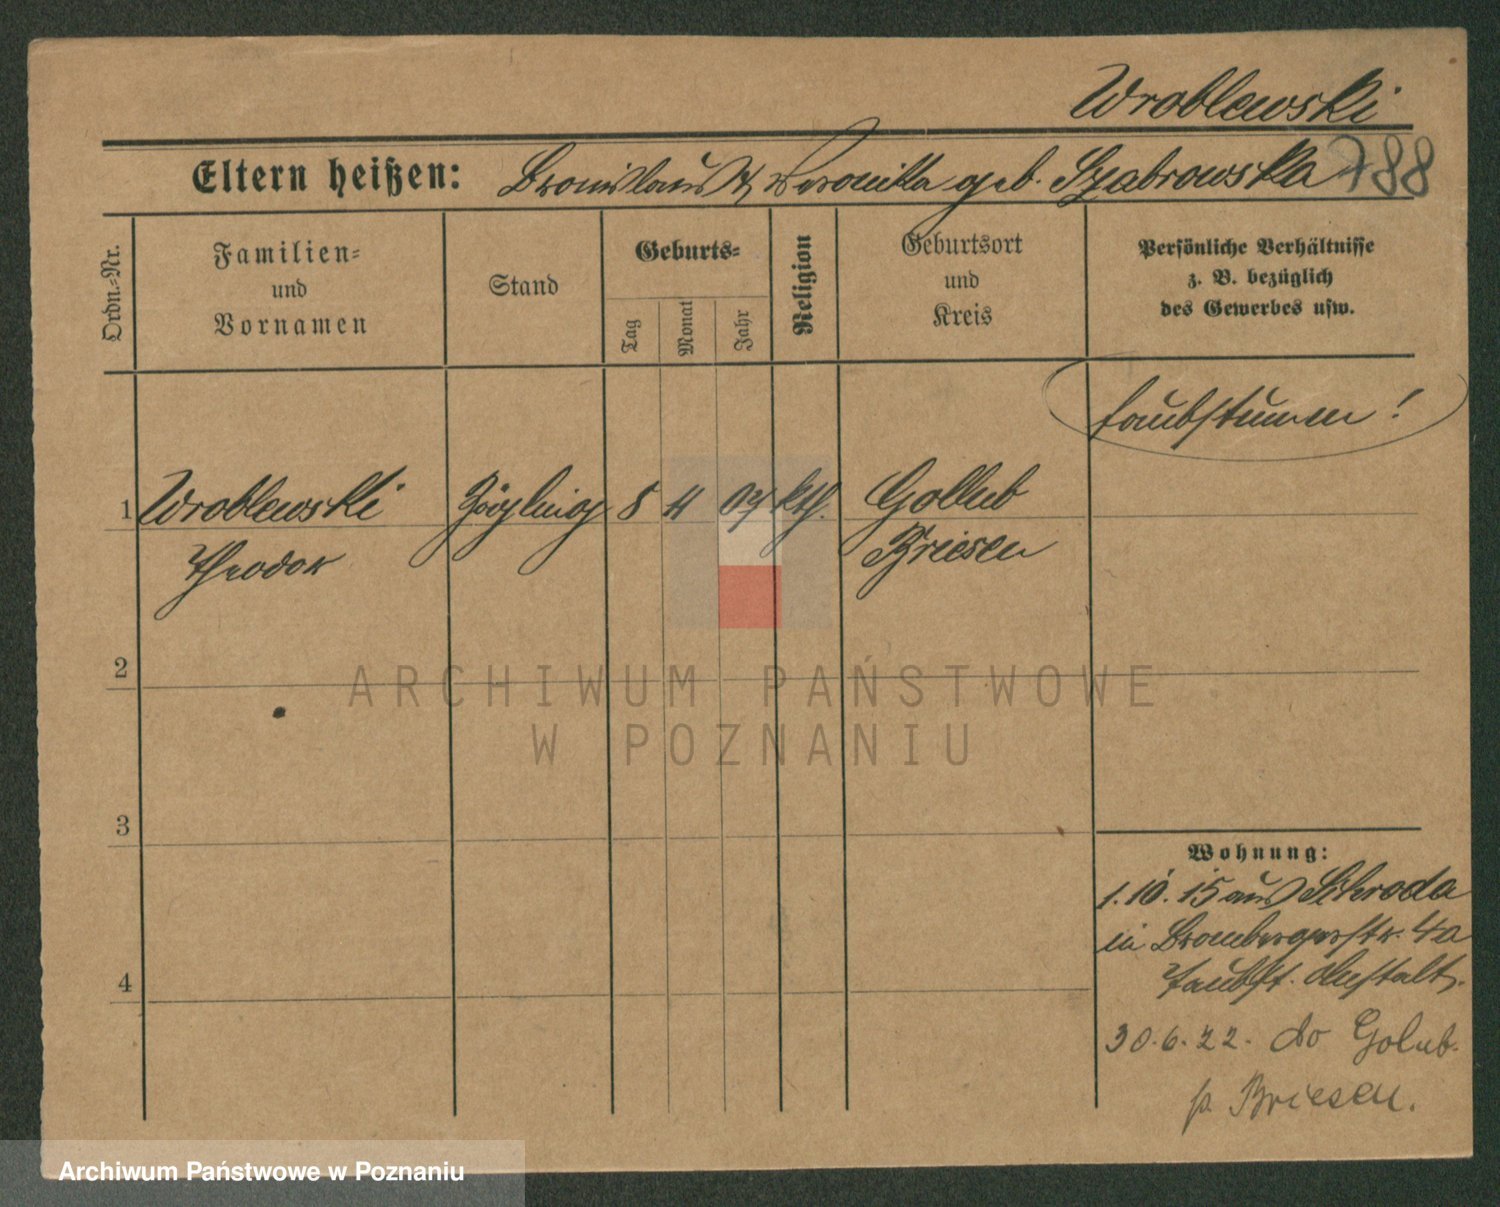 Wroblewski
Eltern heißen: Bronislaus u. Veronika geb. Szabrowska 788
Ordn.-Nr.
Familien-
und
Vornamen
Stand
Geburts-
Tag
Monat
Jahr
Religion
Geburtsort
und
Kreis
Persönliche Verhältnisse
z. B. bezüglich
des Gewerbes usw.
taubstumm!
1 Wroblewski Zögling 8 11 07 kth. Gollub
Theodor Briesen
2
ARCHIWUM PAŃSTWOWE
W POZNANIU
3
Wohnung:
1.10.15 aus Schroda
in Brombergerstr. 4a
Taubst. Anstalt.
4
30.6.22. do Golub.
p. Briesen.
Archiwum Państwowe w Poznaniu